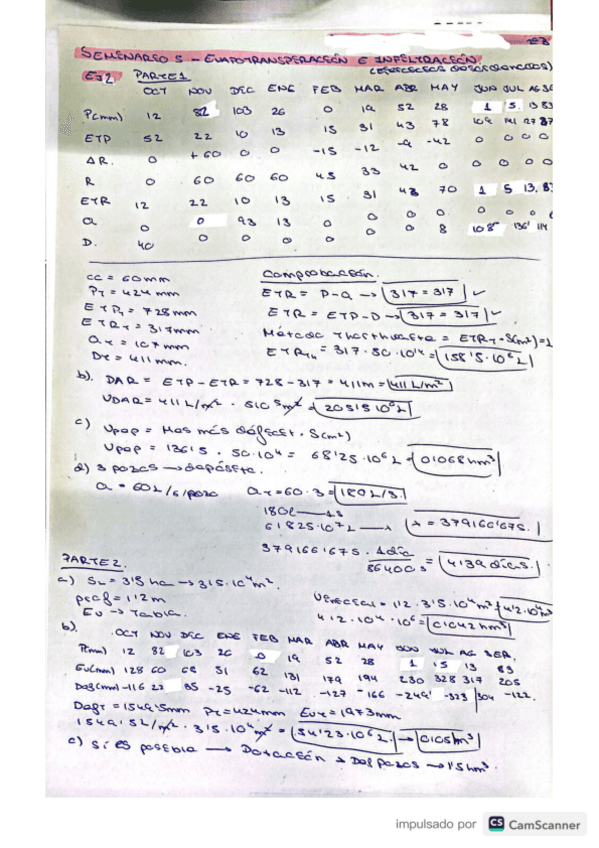 SEMINARIO 5 - EVAPOTRANSPIRACIÓN E INFILTRACIÓN
EJ2. PARTE 1
OCT NOV DEC ENE FEB MAR ABR MAY JUN JUL AG SE
P(mm) 12 82 103 26 0 19 52 28 1 5 13 83
ETP 52 22 10 13 15 31 43 78 109 141 127 87
ΔR. 0 +60 0 0 -15 -12 -9 -42 0 0 0 0
R 0 60 60 60 45 33 42 0 0 0 0 0
ETR 12 22 10 13 15 31 43 70 1 5 13, 83
Q 0 0 93 13 0 0 0 0 0 0 0 0
D. 40 0 0 0 0 0 0 8 108 136 114
CC = 60mm
PT = 424 mm
ETPT = 728mm
ETRT = 317mm
QT = 107mm
DT = 411 mm.
Comprobación.
ETR = P-Q → 317 = 317 ✓
ETR = ETP-D → 317 = 317 ✓
ETRTh = 317·50·10⁴ = 158'5·10⁶L
b). DAR = ETP-ETR = 728-317 = 411m = 411 L/m²
VDAR = 411 L/m² · 510⁵m² = 205'5 10⁶L
c) Vpop = Mas más déficit · S(m²)
Vpop = 136'5 · 50·10⁴ = 68'25·10⁶L = 0'068hm³
d) 3 pozos → depósito.
Q = 60L/s/pozo QT = 60·3 = 180L/s.
180L — 1s
6'825·10⁷L — x x = 379166'675.
379166'675 · 1día / 86400s = 4'39 días.
PARTE 2.
a) SL = 3'5 ha → 3'5·10⁴m².
prof = 1'2m
Ev → Tabla.
4'2·10⁴·10⁶ = 0'042hm³
b).
OCT NOV DEC ENE FEB MAR ABR MAY JUN JUL AG SEP.
P(mm) 12 82 103 26 0 19 52 28 1 5 13 83
Ev(mm) 128 60 68 51 62 131 179 194 250 328 317 205
Dag(mm) -116 22 35 -25 -62 -112 -127 -166 -249 -323 304 -122.
DagT = 1549'5mm PT = 424mm EvT = 1973mm
1549'5L/m² · 3'5·10⁴m² = 54'23·10⁶L → 0'05hm³
c) Sí es posible → Dotación → Del pozos → 1'5hm³
impulsado por CS CamScanner